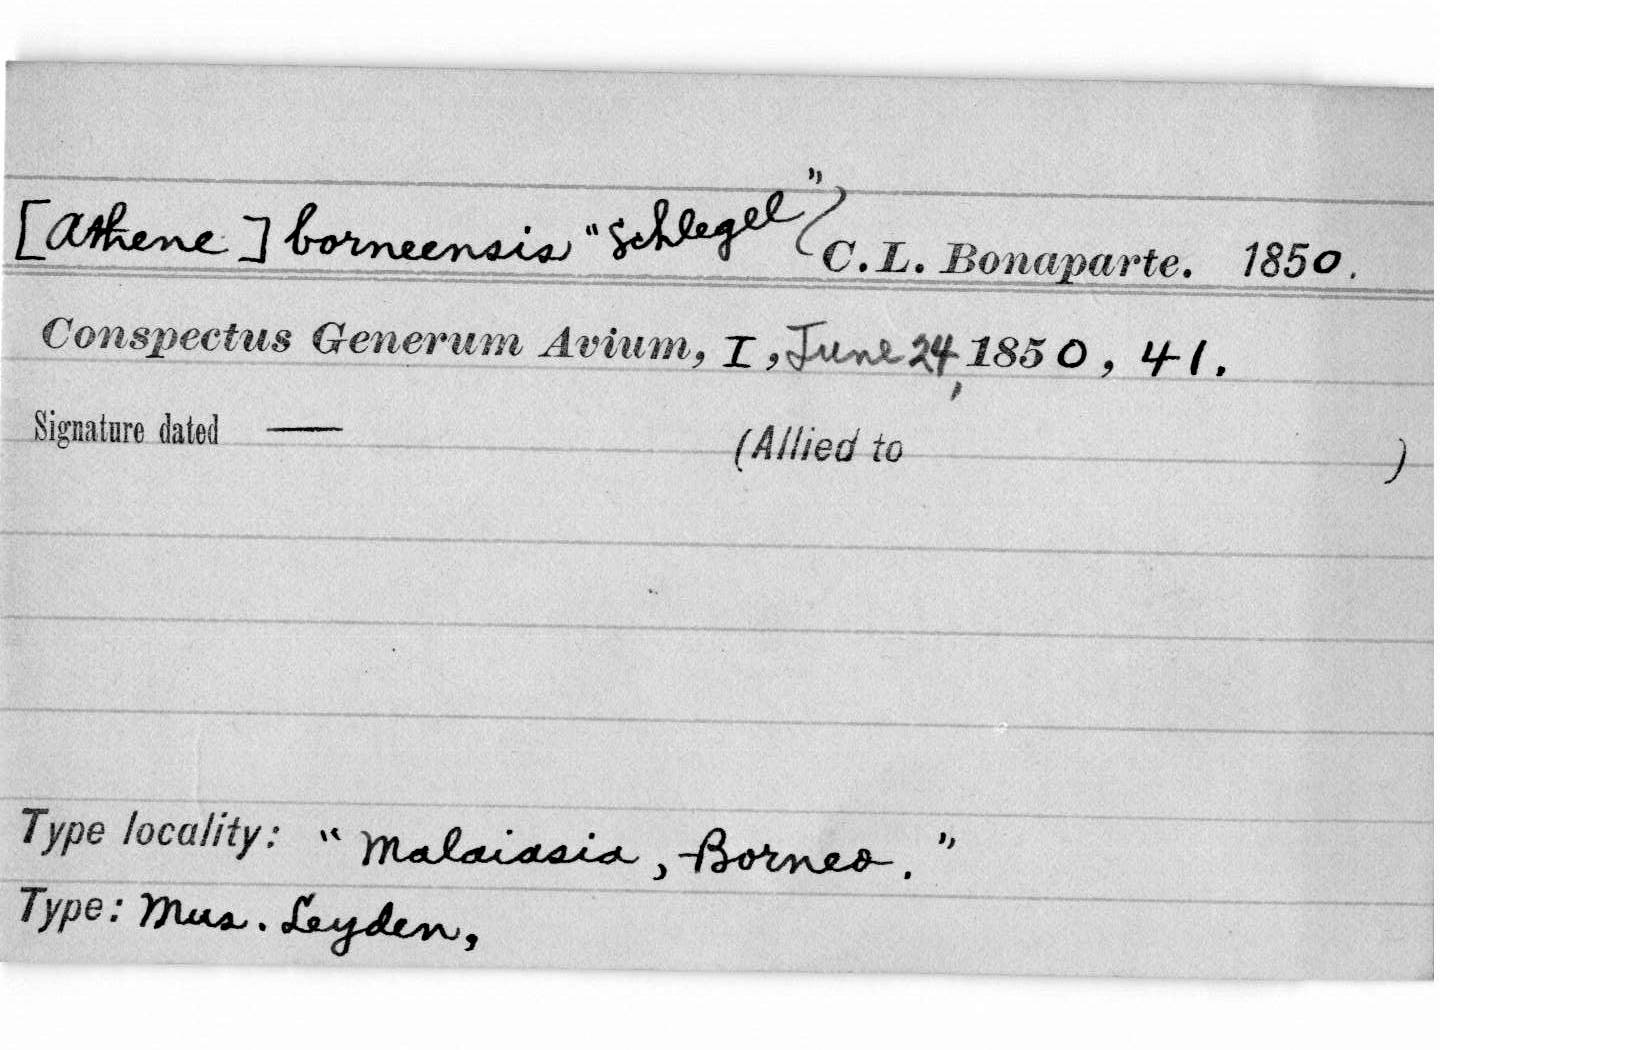 [Athene] borneensis "Schlegel" C. L. Bonaparte. 1850.
Conspectus Generum Avium, I, June 24, 1850, 41.
Signature dated — (Allied to )
Type locality: "Malaiasia, Borneo."
Type: Mus. Leyden,